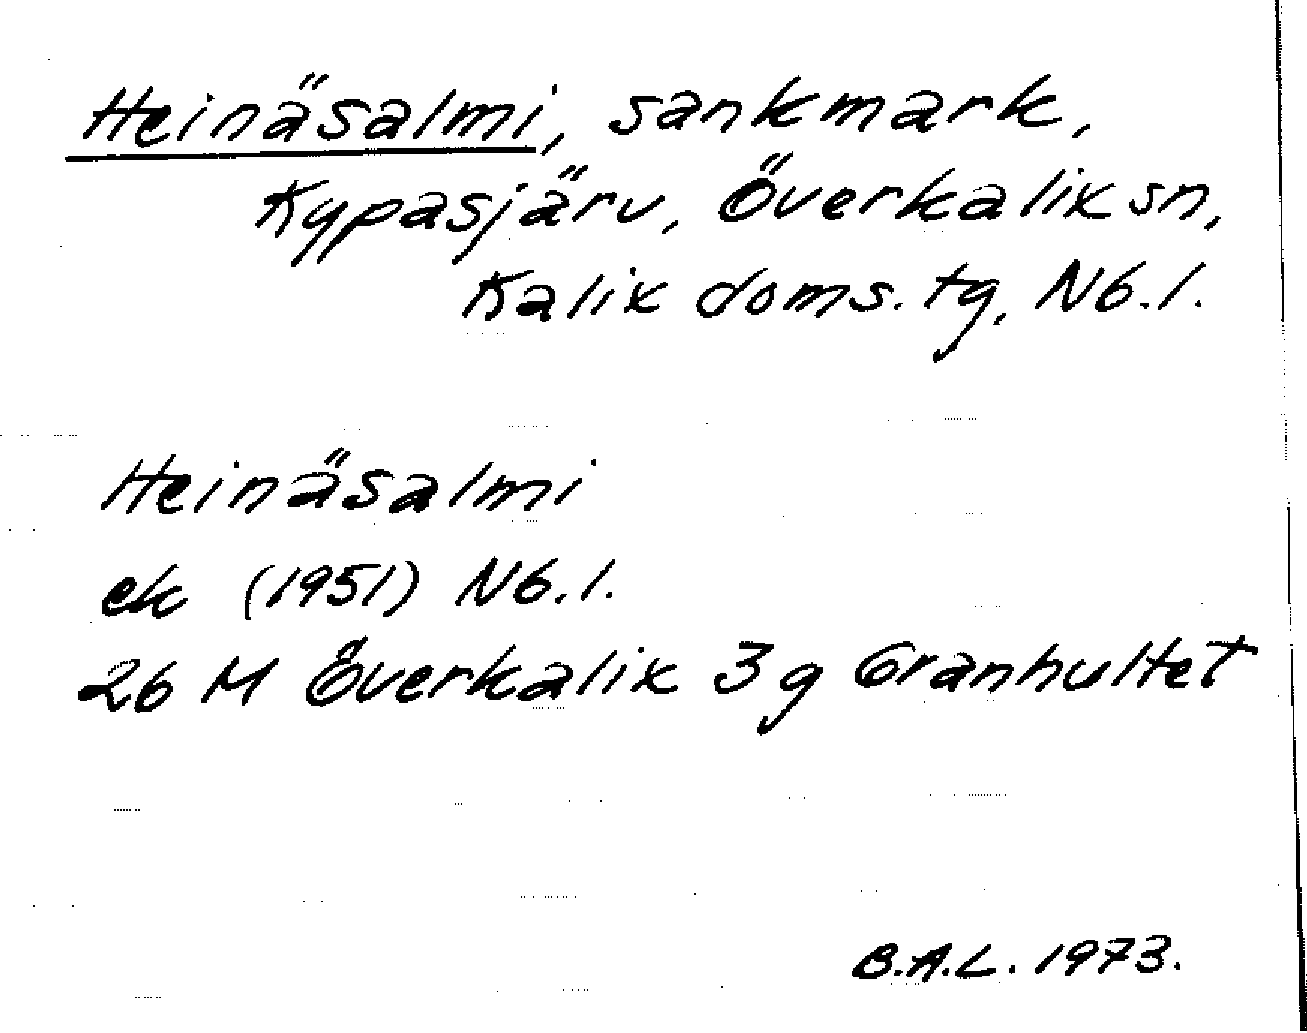 Heinäsalmi, sankmark,
Kypasjärv, Överkalix sn,
Kalix doms. tg, Nb.l.
Heinäsalmi
ek (1951) Nb.l.
26 M Överkalix 3 g Granhultet
B.A.L. 1973.